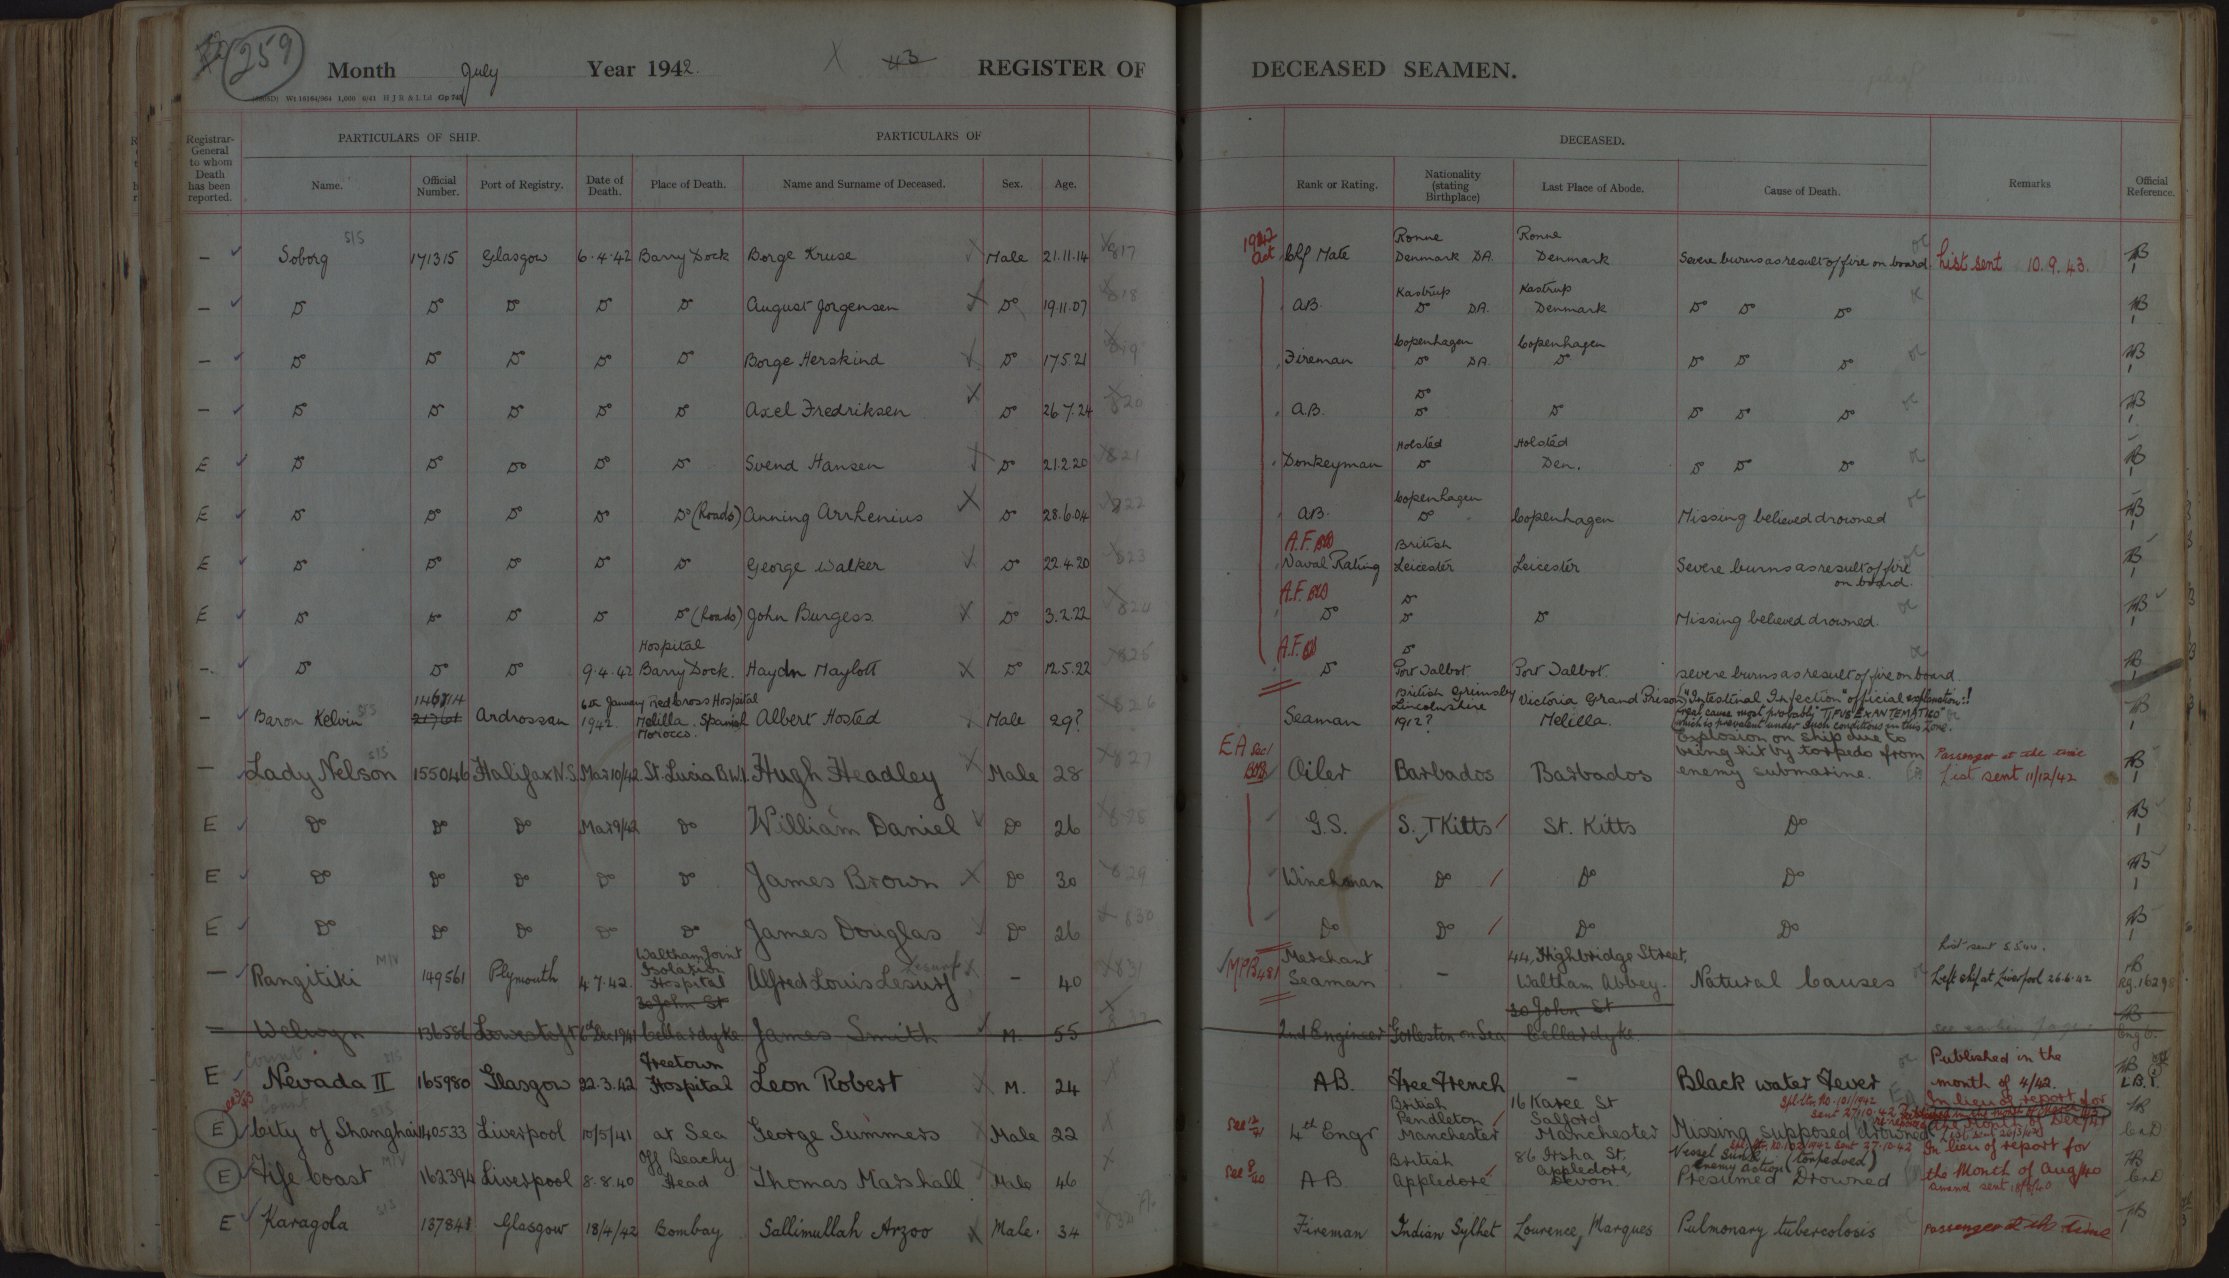 259
Month July Year 1942. 43 REGISTER OF DECEASED SEAMEN.
Wt 16164/964 1,000 6/41 H J R & L Ld Gp 748
Registrar-General to whom Death has been reported.
PARTICULARS OF SHIP.
PARTICULARS OF DECEASED.
Name. Official Number. Port of Registry. Date of Death. Place of Death. Name and Surname of Deceased. Sex. Age. Rank or Rating. Nationality (stating Birthplace) Last Place of Abode. Cause of Death. Remarks Official Reference.
— Soborg S/S 171315 Glasgow 6.4.42 Barry Dock Borge Kruse Male 21.11.14 817 1942 Oct Chf Mate Ronne Denmark DA. Ronne Denmark Severe burns as result of fire on board List sent 10.9.43.
— Do Do Do Do Do August Jorgensen Do 19.11.07 818 A.B. Kastrup Do DA. Kastrup Denmark Do Do Do
— Do Do Do Do Do Borge Herskind Do 17.5.21 819 Fireman Copenhagen Do DA. Copenhagen Do Do Do Do
— Do Do Do Do Do Axel Fredriksen Do 26.7.24 820 A.B. Do Do Do Do Do Do
E Do Do Do Do Do Svend Hansen Do 21.2.20 821 Donkeyman Holsted Do Holsted Den. Do Do Do
E Do Do Do Do Do (Roads) Anning Arrhenius Do 28.6.04 822 A.B. Copenhagen Do Copenhagen Missing believed drowned
E Do Do Do Do Do George Walker Do 22.4.20 823 A.F. Naval Rating British Leicester Leicester Severe burns as result of fire on board.
E Do Do Do Do Do (Roads) John Burgess Do 3.2.22 824 A.F. Do Do Do Do Missing believed drowned.
— Do Do Do 9.4.42 Hospital Barry Dock. Haydn Maylott Do 12.5.22 825 A.F. Do Do Port Talbot Port Talbot severe burns as result of fire on board.
— Baron Kelvin S/S 146714 Ardrossan 6th January 1942. Red Cross Hospital Melilla. Spanish Morocco. Albert Hosted Male 29? 826 Seaman British Grimsby Lincolnshire 1912? Victoria Grand Prison, Melilla. "Intestinal Infection" official explanation!! real cause most probably "TIFUS EXANTEMATICO" which is prevalent under such conditions in this Zone.
— Lady Nelson S/S 155046 Halifax N.S. Mar 10/42 St. Lucia B.W.I. Hugh Headley Male 28 827 EA Oiler Barbados Barbados Explosion on ship due to being hit by torpedo from enemy submarine. Passenger at the time List sent 11/12/42
E Do Do Do Mar 9/42 Do William Daniel Do 26 828 G.S. S. T Kitts St. Kitts Do
E Do Do Do Do Do James Brown Do 30 829 Winchman Do Do Do
E Do Do Do Do Do James Douglas Do 26 830 Do Do Do Do
— Rangitiki M/V 149561 Plymouth 4.7.42. Waltham Joint Isolation Hospital Alfred Louis Lesurf — 40 831 MPB 481 Merchant Seaman — 44, Highbridge Street, Waltham Abbey. Natural Causes List sent 5.5.44. Left ship at Liverpool 26.6.42 Rg. 16298
— Welwyn 136586 Lowestoft 6th Dec 1941 30 John St Cellardyke James Smith M. 55 832 2nd Engineer Gorleston on Sea 30 John St Cellardyke. see earlier page Eng 6.
E Nevada II S/S 165980 Glasgow 22.3.42 Freetown Hospital Leon Robert M. 24 A.B. Free French — Black water Fever Published in the month of 4/42. L.B.1.
E City of Shanghai S/S 140533 Liverpool 10/5/41 at Sea George Summers Male 22 see 12/41 4th Engr British Pendleton Manchester 16 Karee St Salford Manchester Missing supposed drowned In lieu of report for the month of Dec/41 C and D
E Fife Coast M/V 162394 Liverpool 8.8.40 Off Beachy Head Thomas Marshall Male 46 see 8/40 A.B. British Appledore 86 Irsha St. Appledore, Devon. Vessel sunk (torpedoed) enemy action Presumed Drowned In lieu of report for the Month of Aug/40 C and D
E Karagola S/S 137841 Glasgow 18/4/42 Bombay Sallimullah Arzoo Male. 34 834 Fireman Indian Sylhet Lourence, Marques Pulmonary tubercolosis Passenger at the time